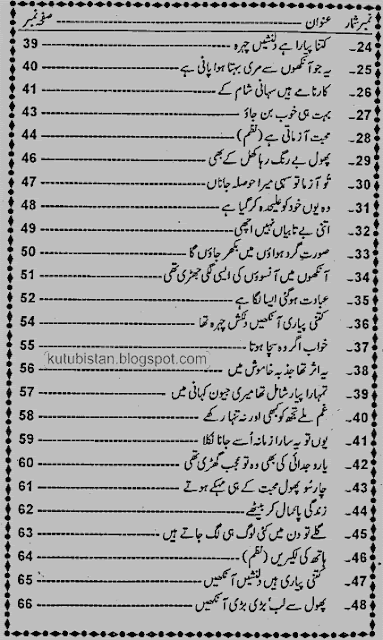 نمبر شمار عنوان صفحہ نمبر
24۔ کتنا پیارا ہے دلنشیں چہرہ 39
25۔ یہ جو آنکھوں سے مری بہتا ہوا پانی ہے 40
26۔ کارنامے ہیں سہانی شام کے 41
27۔ بہت ہی خوب بن جاؤ 43
28۔ محبت آزماتی ہے (نظم) 44
29۔ پھول بے رنگ رہا کھل کے بھی 46
30۔ تُو آزما تو سہی میرا حوصلہ جاناں 47
31۔ وہ یوں خود کو علیحدہ کر گیا ہے 48
32۔ اتنی بے تابیاں نہیں اچھی 49
33۔ صورتِ گرد ہواؤں میں بکھر جاؤں گا 50
34۔ آنکھوں میں آنسوؤں کی ایسی لگی جھڑی تھی 51
35۔ عبادت ہو گئی ایسا لگا ہے 52
36۔ کتنی پیاری آنکھیں دلکش چہرہ تھا 54
37۔ خواب اگر وہ سچا ہوتا 55
kutubistan.blogspot.com
38۔ یہ اثر تھا جذبہ خاموش میں 56
39۔ تمہارا پیار شامل تھا میری جیون کہانی میں 57
40۔ غم ملے تجھ کو کبھی اور نہ تنہا رکھے 58
41۔ یوں تو یہ سارا زمانہ اُسے جانا نکلا 59
42۔ یارو جدائی کی بھی وہ تو عجب گھڑی تھی 60
43۔ چار سُو پھول محبت کے ہی مہکے ہوتے 61
44۔ زندگی پائمال کر بیٹھے 62
45۔ گلے تو دن میں کئی لوگ ہی لگ جاتے ہیں 63
46۔ ہاتھ کی لکیریں (نظم) 64
47۔ کتنی پیاری ہیں دلنشیں آنکھیں 65
48۔ پھول سے لب، بڑی بڑی آنکھیں 66